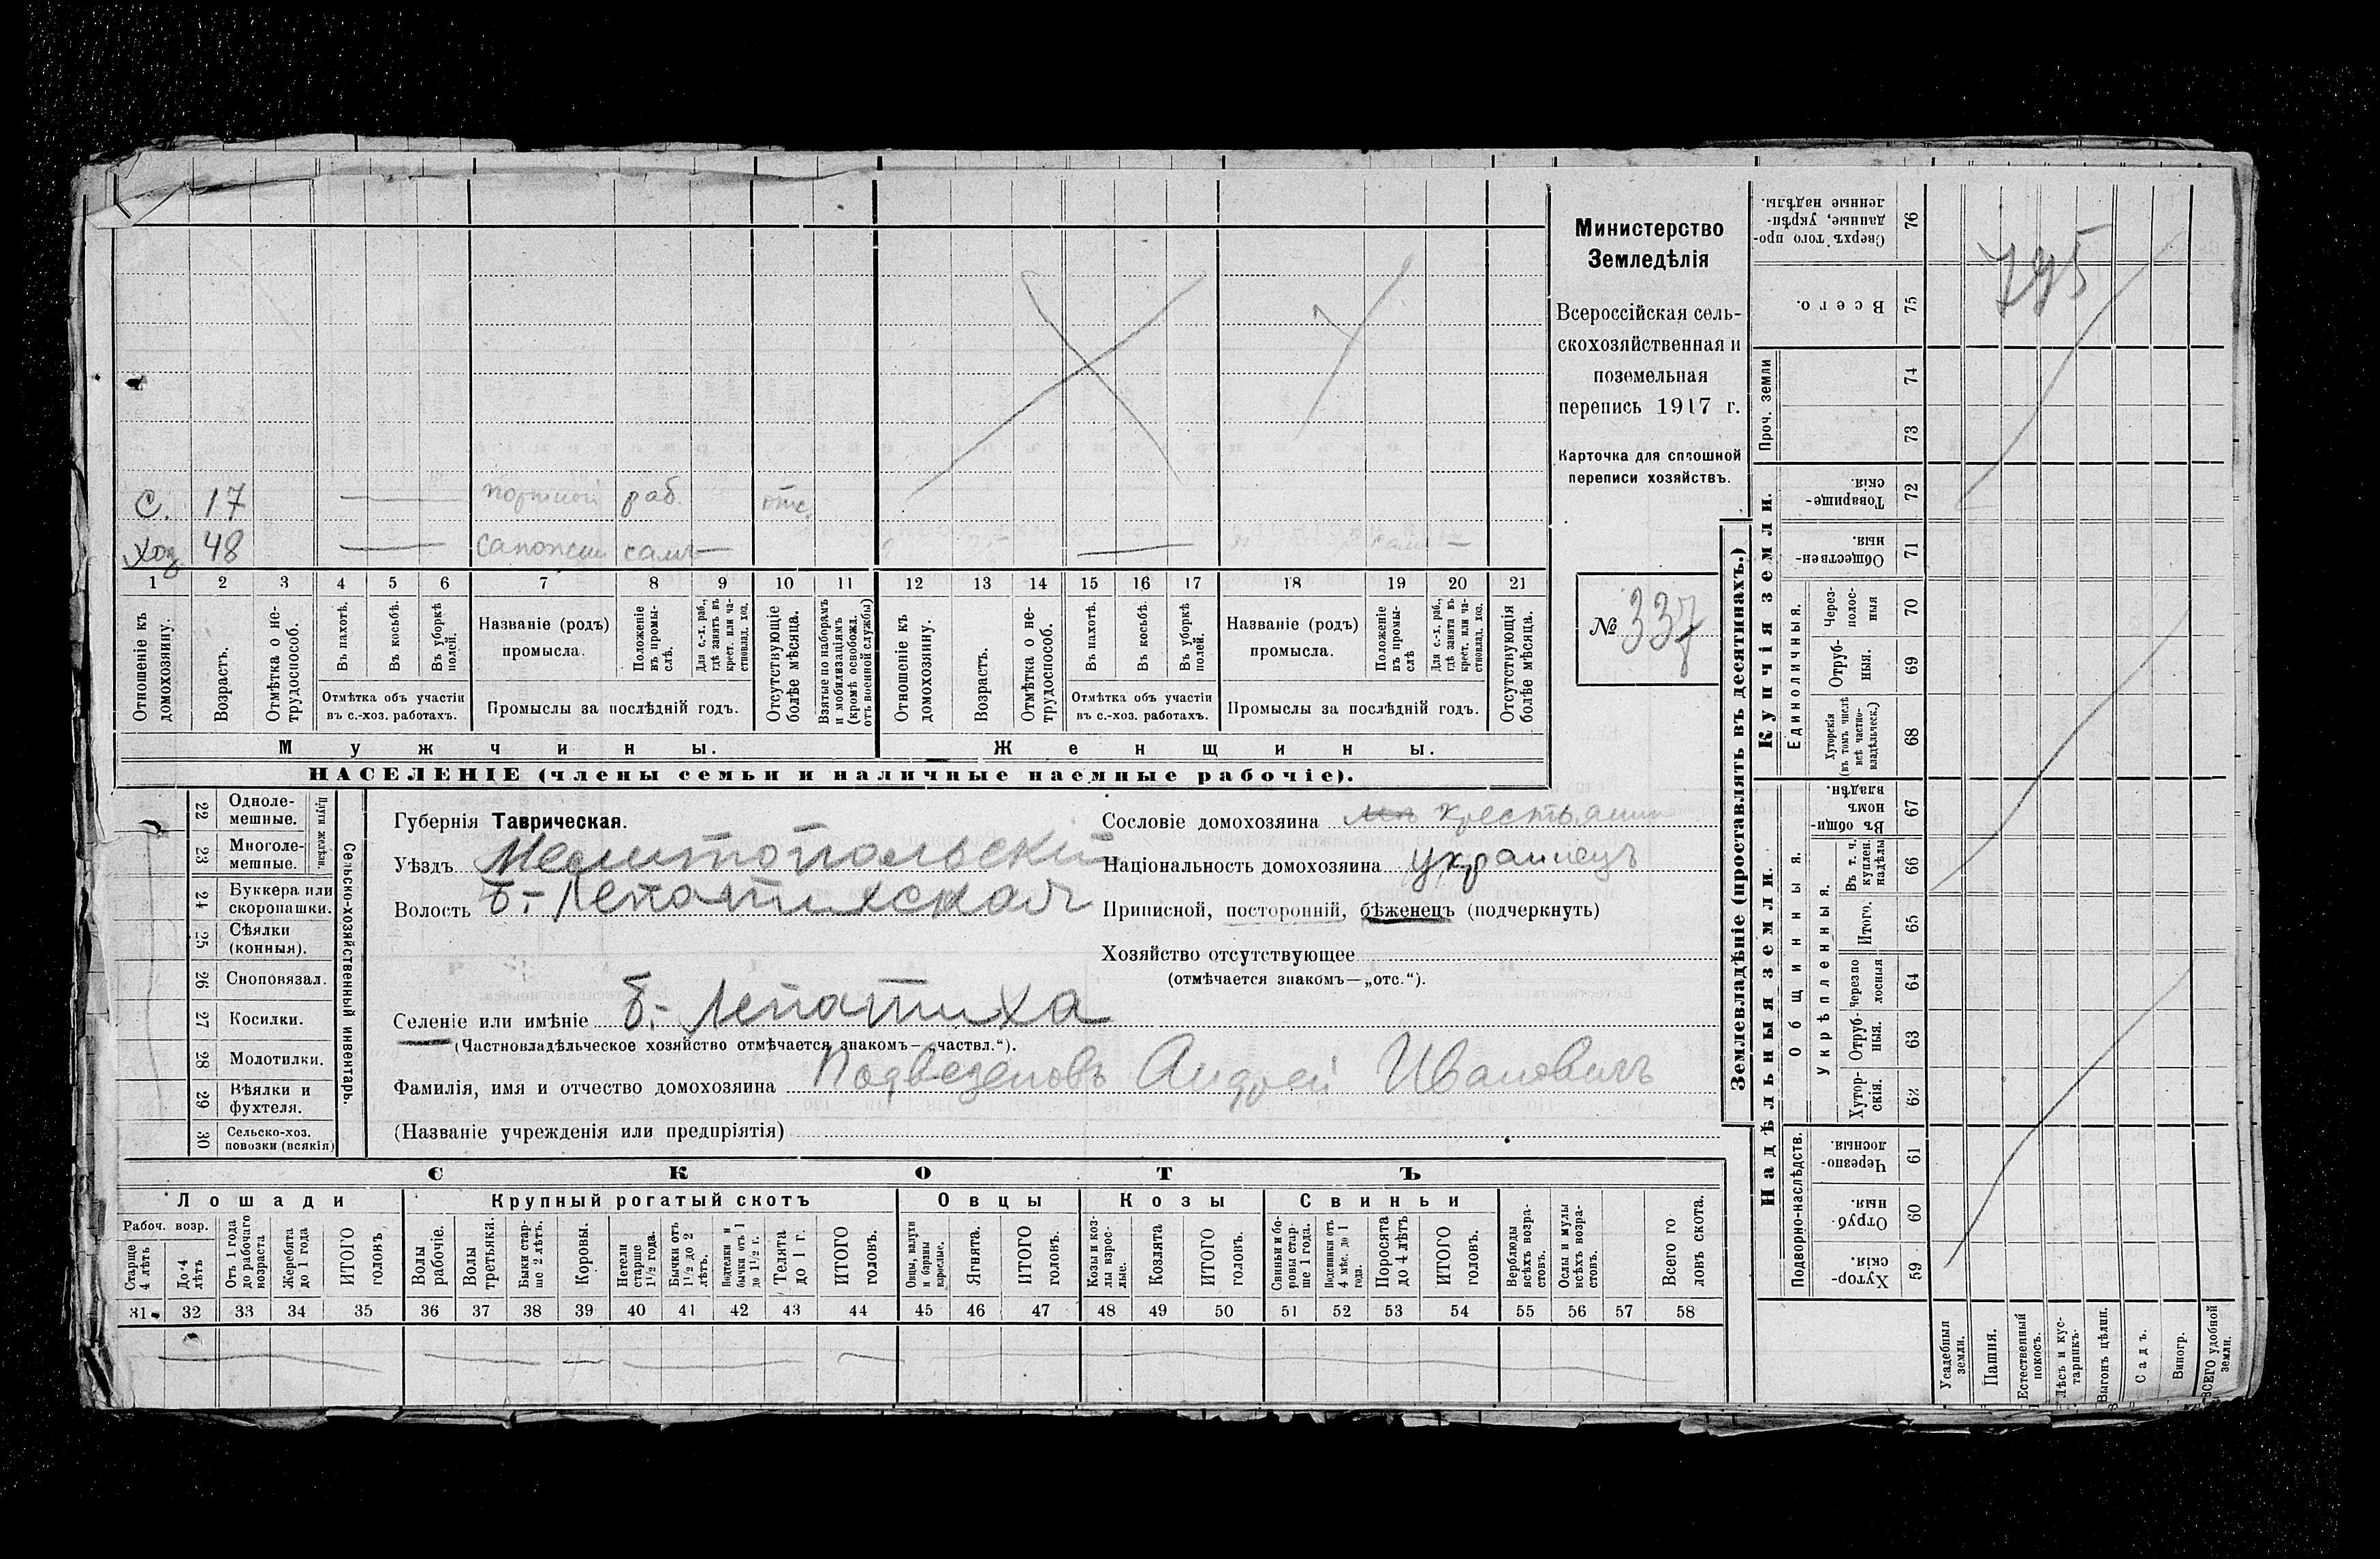 С. 17 — портной раб. отс.
Хоз 48 — сапожн самъ —
1 2 3 4 5 6 7 8 9 10 11 12 13 14 15 16 17 18 19 20 21
Отношеніе къ домохозяину.
Возрастъ.
Отмѣтка о нетрудоспособ.
Въ пахотѣ.
Въ косьбѣ.
Въ уборкѣ полей.
Отмѣтка объ участіи
въ с.-хоз. работахъ.
Названіе (родъ)
промысла.
Положеніе въ промыслѣ.
Для с.-х. раб., гдѣ занятъ въ крест. или частновлад. хоз.
Промыслы за послѣдній годъ.
Отсутствующіе болѣе мѣсяца.
Взятые по наборамъ и мобилизаціямъ (кромѣ освобожд. отъ военной службы)
Отношеніе къ домохозяину.
Возрастъ.
Отмѣтка о нетрудоспособ.
Въ пахотѣ.
Въ косьбѣ.
Въ уборкѣ полей.
Отмѣтка объ участіи
въ с.-хоз. работахъ.
Названіе (родъ)
промысла.
Положеніе въ промыслѣ
Для с.-х. раб., гдѣ занята въ крест. или частновлад. хоз.
Промыслы за послѣдній годъ.
Отсутствующія болѣе мѣсяца.
Мужчины. Женщины.
НАСЕЛЕНІЕ (члены семьи и наличные наемные рабочіе).
Министерство
Земледѣлія
Всероссійская сель-
скохозяйственная и
поземельная
перепись 1917 г.
Карточка для сплошной
переписи хозяйствъ.
№ 337
Сельско-хозяйственный инвентарь.
Плуги желѣзн.
22 Одноле-
мешные.
23 Многоле-
мешные.
24 Буккера или
скоропашки.
25 Сѣялки
(конныя).
26 Сноповязал.
27 Косилки.
28 Молотилки.
29 Вѣялки и
фухтеля.
30 Сельско-хоз.
повозки (всякія)
Губернія Таврическая.
Уѣздъ Мелитопольскій
Волость Б.-Лепатихская
Селеніе или имѣніе Б.- Лепатиха
(Частновладѣльческое хозяйство отмѣчается знакомъ—„частвл.“).
Фамилія, имя и отчество домохозяина Подвезеновъ Андрей Ивановичъ
(Названіе учрежденія или предпріятія)
Сословіе домохозяина крестьянин
Національность домохозяина украинецъ
Приписной, посторонній, бѣженецъ (подчеркнуть)
Хозяйство отсутствующее
(отмѣчается знакомъ—„отс.“).
СКОТЪ
Лошади Крупный рогатый скотъ Овцы Козы Свиньи
Рабоч. возр.
Старше 4 лѣтъ
До 4 лѣтъ
Отъ 1 года до рабочаго возраста
Жеребята до 1 года
ИТОГО головъ
Волы рабочіе.
Волы третьяки.
Быки старше 2 лѣтъ.
Коровы.
Нетели старше 1½ года.
Бычки отъ 1½ до 2 лѣтъ.
Подтелки и бычки отъ 1 до 1½ г.
Телята до 1 г.
ИТОГО головъ.
Овцы, валухи и бараны взрослые.
Ягнята.
ИТОГО головъ.
Козы и козлы взрослые.
Козлята
ИТОГО головъ.
Свиньи и боровы старше 1 года.
Подсвинки отъ 4 мѣс. до 1 года.
Поросята до 4 лѣтъ
ИТОГО головъ.
Верблюды всѣхъ возрастовъ.
Ослы и мулы всѣхъ возрастовъ.
Всего головъ скота.
31 32 33 34 35 36 37 38 39 40 41 42 43 44 45 46 47 48 49 50 51 52 53 54 55 56 57 58
Землевладѣніе (проставлять въ десятинахъ.)
795
76 Сверхъ того проданные, укрѣпленные надѣлы.
75 Всего.
Проч. земли
74
73
Купчія земли.
72 Товарищескія.
71 Общественныя.
Единоличныя.
70 Черезполосныя
69 Отрубныя.
68 Хуторскія (въ томъ числѣ всѣ частновладѣльческ.)
Надѣльныя земли.
Общинныя.
67 Въ общинномъ владѣн.
Укрѣпленныя.
66 Въ т. ч. куплен. надѣлы
65 Итого.
64 Черезполосныя
63 Отрубныя.
62 Хуторскія.
Подворно-наслѣдств.
61 Черезполосныя
60 Отрубныя.
59 Хуторскія.
Усадебныя земли.
Пашня.
Естественный покосъ.
Лѣсъ и кустарникъ.
Выгонъ цѣлин.
Садъ.
Виногр.
ВСЕГО удобной земли.